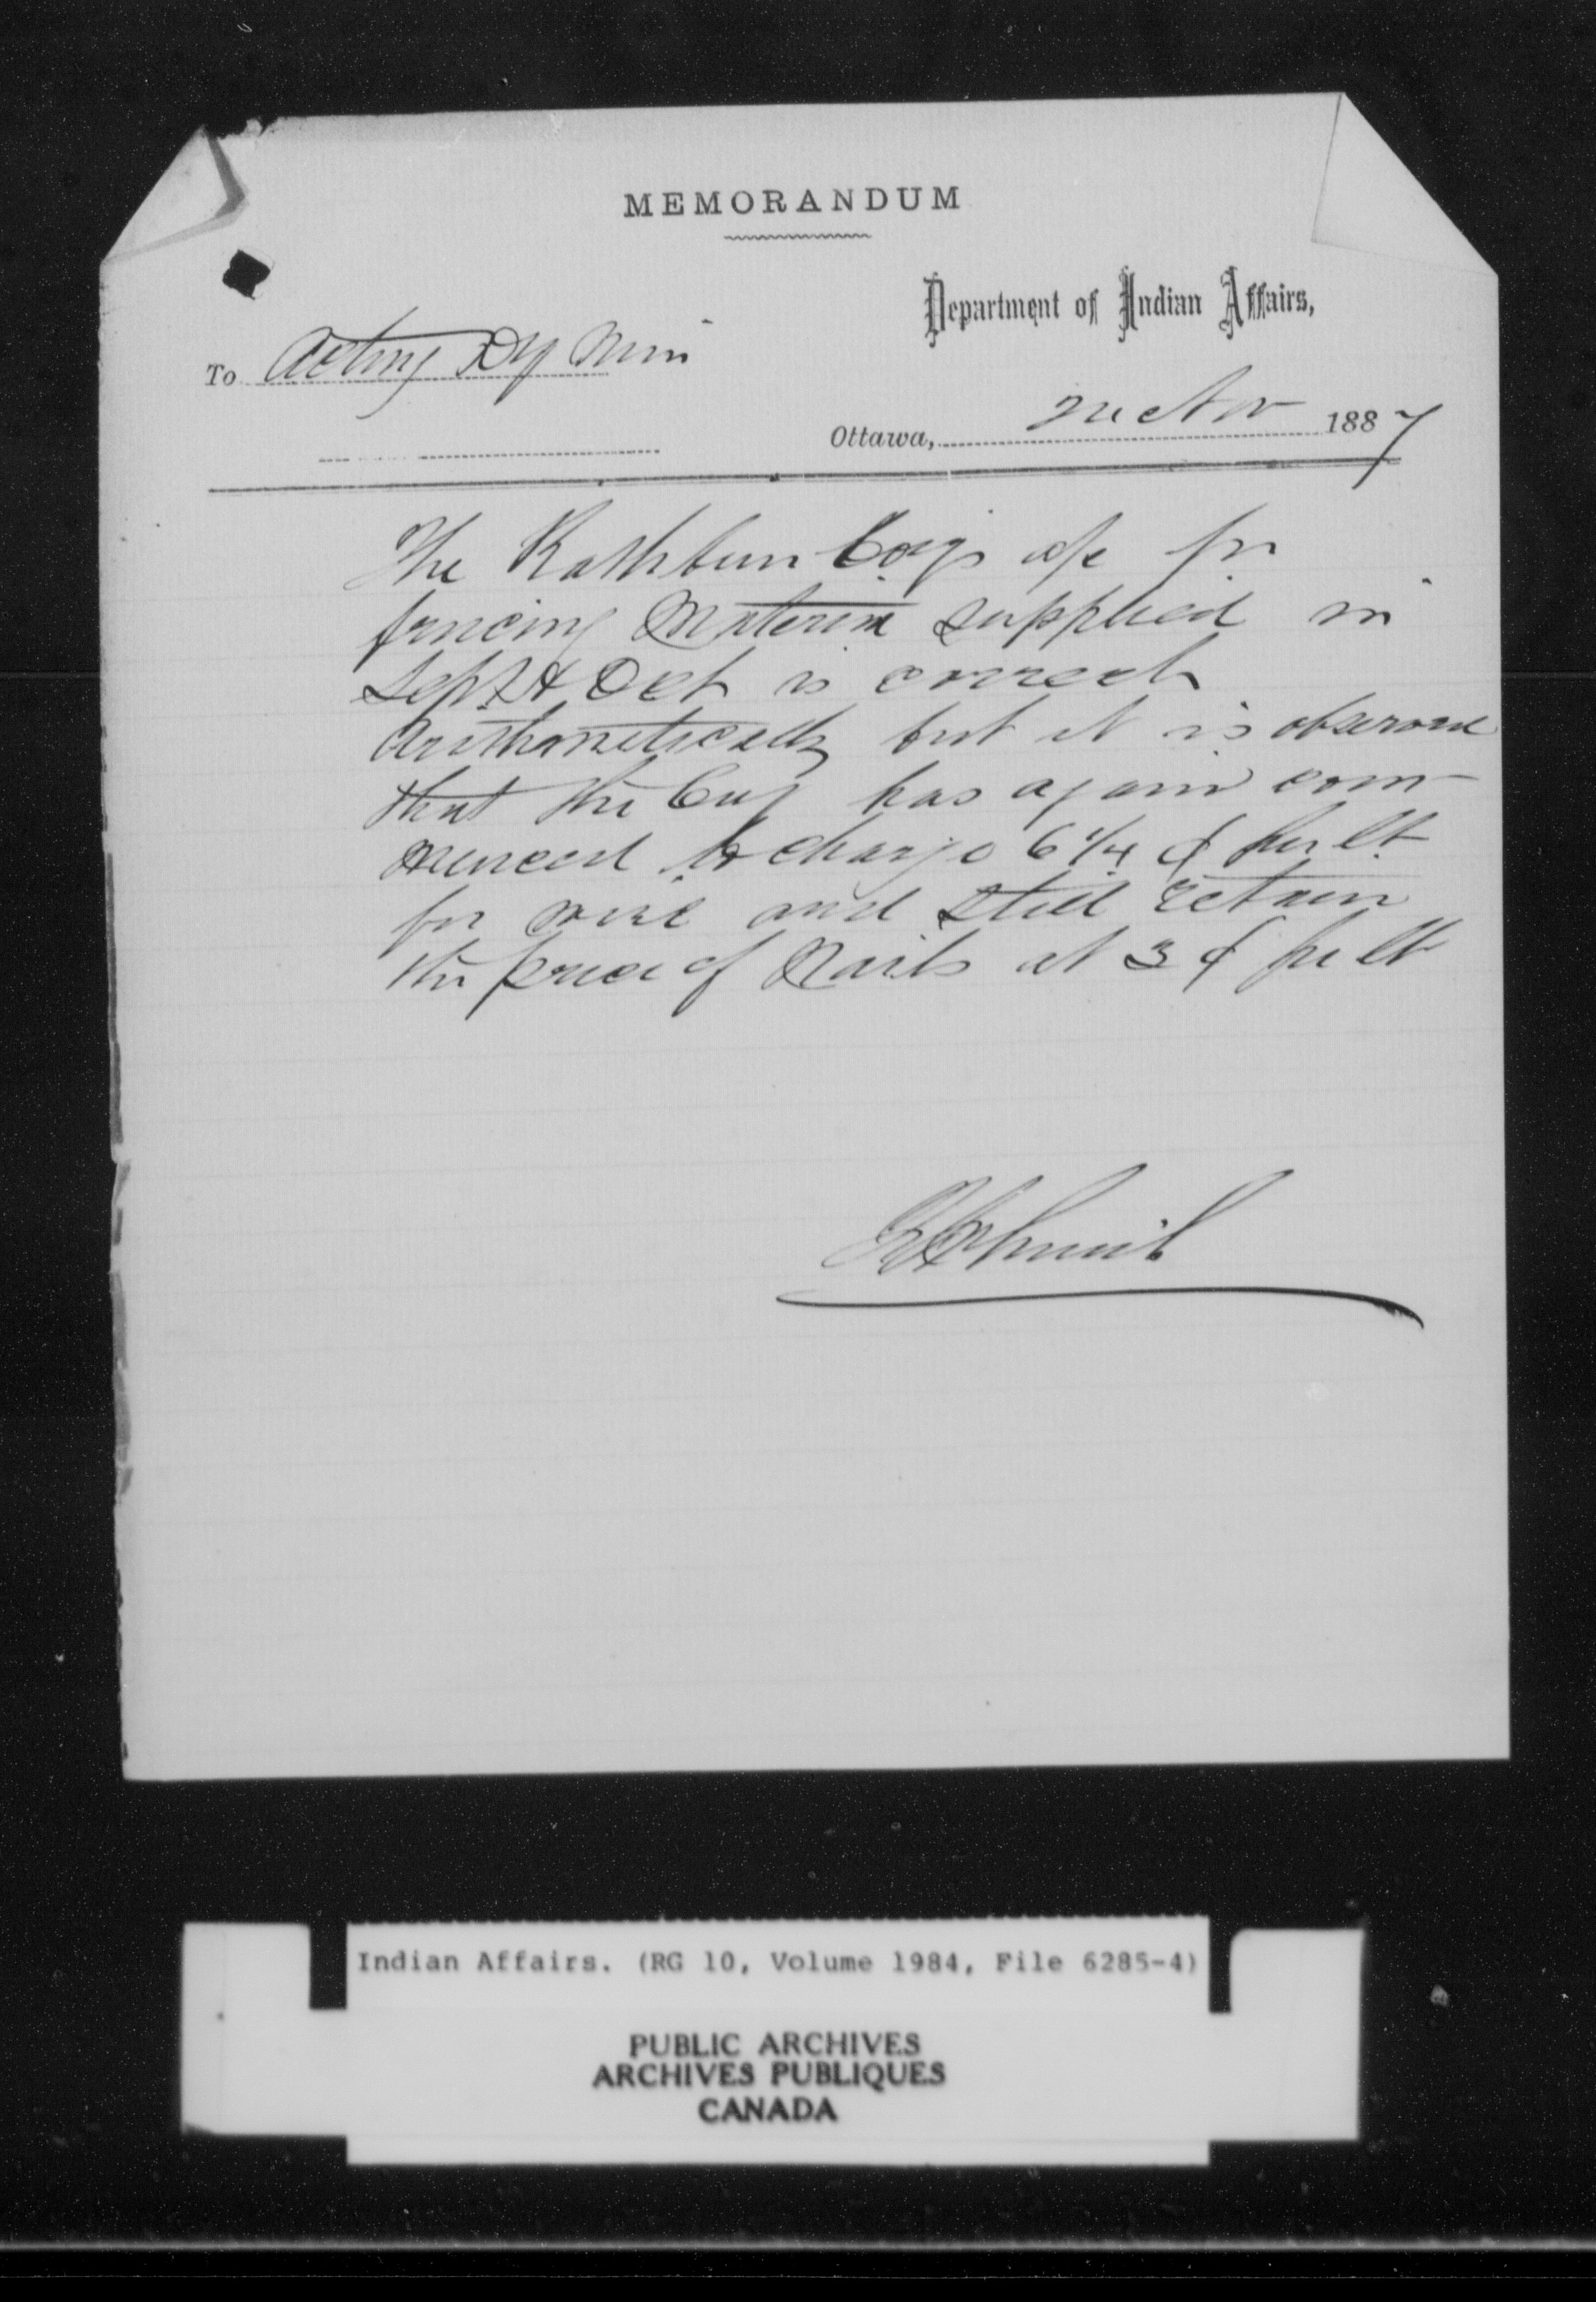 MEMORANDUM
Department of Indian Affairs,
To Acting Dy Min
Ottawa, Nov 1887
The Rathbun Coy's a/c for
fencing material supplied in
Sept & Oct is correct
arithmetically but it is observed
that the Coy has again com-
menced to charge 6 1/4 ¢ per lb
for wire and still retain
the price of Nails at 3 ¢ per lb
Indian Affairs. (RG 10, Volume 1984, File 6285-4)
PUBLIC ARCHIVES
ARCHIVES PUBLIQUES
CANADA